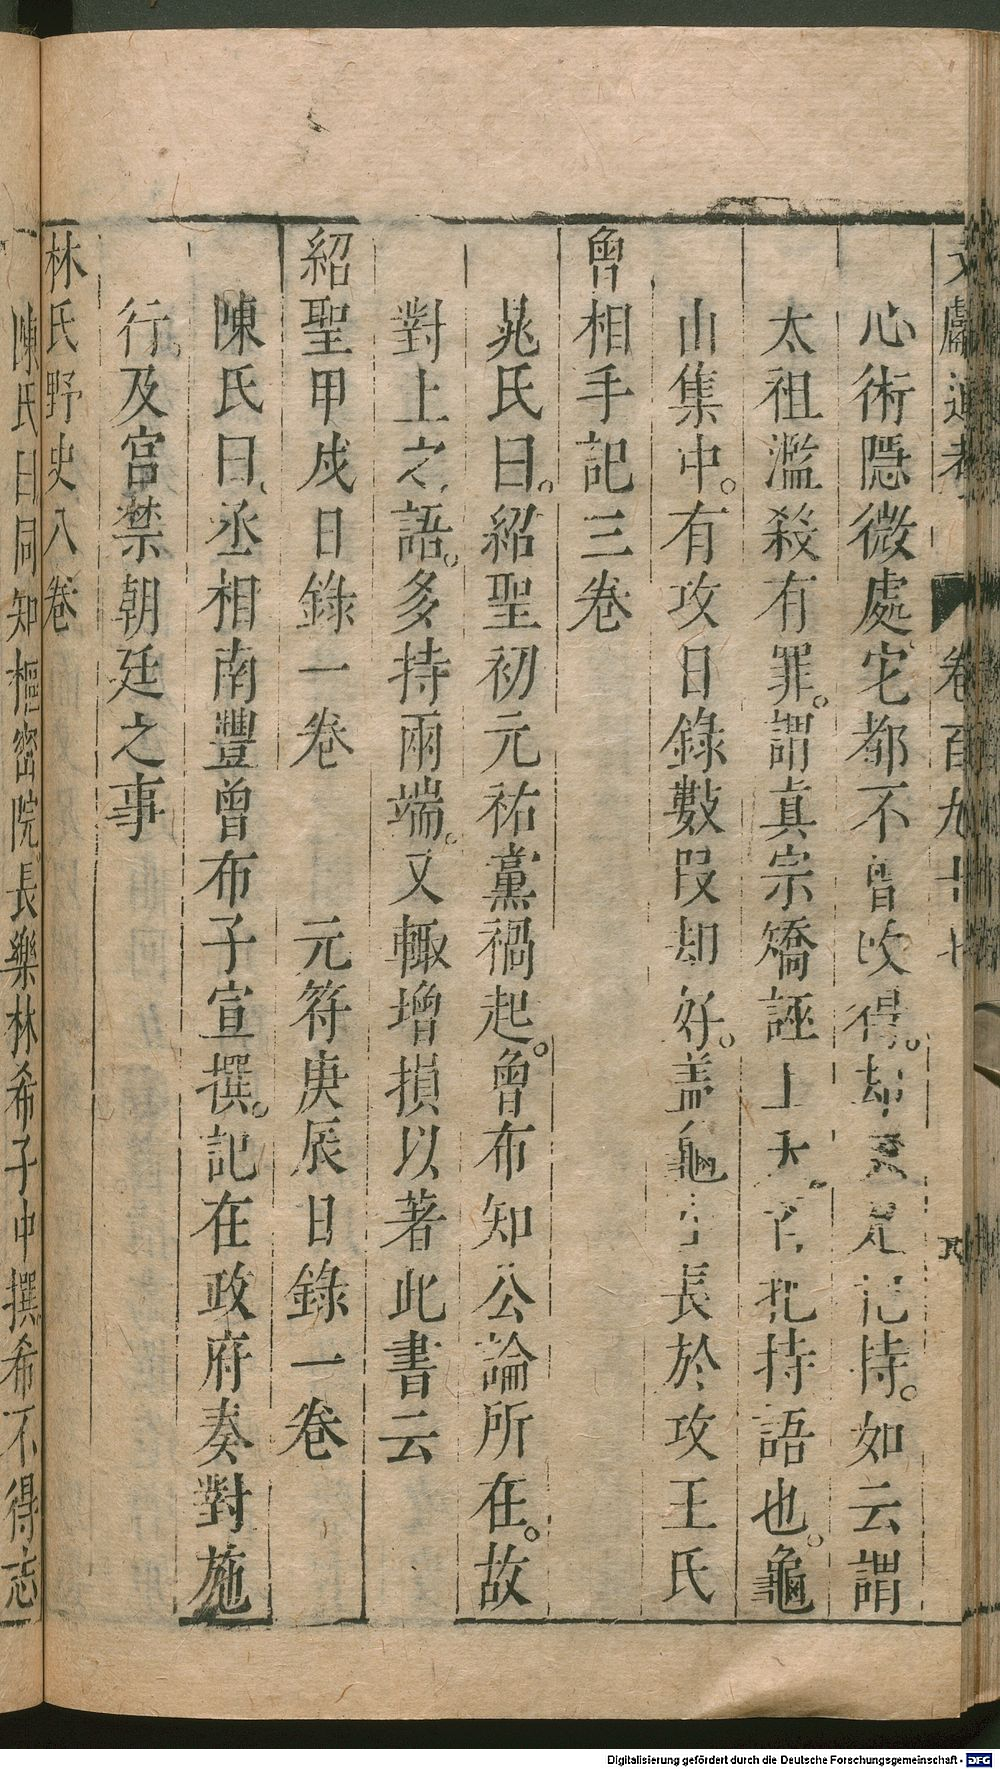 文獻通考 卷百九十七
心術隱微處它都不曾攻得。却只是記持。如云謂
太祖濫殺有罪。謂真宗矯誣上天。皆把持語也。龜
山集中。有攻日錄數段却好。盖龜山長於攻王氏
曾相手記三卷
晁氏曰。紹聖初元祐黨禍起。曾布知公論所在。故
對上之語。多持兩端。又輙增損以著此書云
紹聖甲戍日錄一卷 元符庚辰日錄一卷
陳氏曰丞相南豐曾布子宣撰。記在政府奏對施
行。及宫禁朝廷之事
林氏野史八卷
陳氏曰同知樞密院長樂林希子中撰希不得志
Digitalisierung gefördert durch die Deutsche Forschungsgemeinschaft - DFG